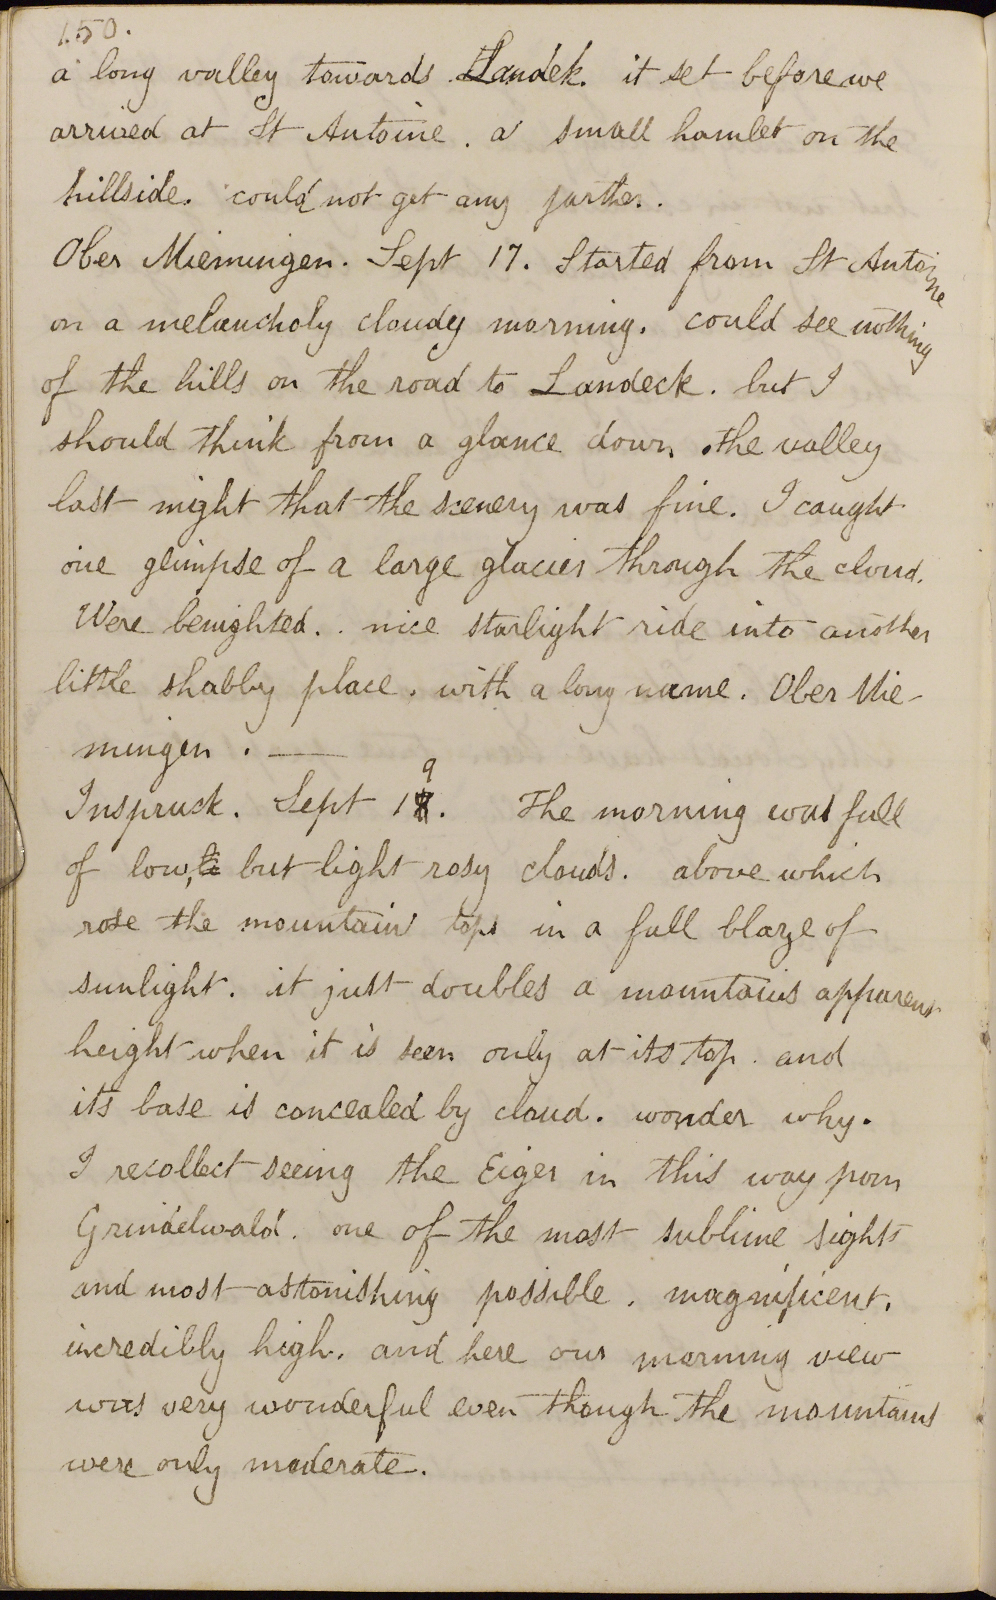 150.
a long valley towards Landek. it set before we
arrived at St Antoine. a small hamlet on the
hillside. could not get any farther.
Ober Miemingen. Sept 17. Started from St Antoine
on a melancholy cloudy morning. could see nothing
of the hills on the road to Landeck. but I
should think from a glance down the valley
last night that the scenery was fine. I caught
one glimpse of a large glacier through the cloud.
Were benighted.. nice starlight ride into another
little shabby place. with a long name. Ober Mie-
mingen. —
Inspruck. Sept 19. The morning was full
of low, but light rosy clouds. above which
rose the mountain tops in a full blaze of
sunlight. it just doubles a mountains apparent
height when it is seen only at its top. and
its base is concealed by cloud. wonder why.
I recollect seeing the Eiger in this way from
Grindelwald. one of the most sublime sights
and most astonishing possible. magnificent.
incredibly high. and here our morning view
was very wonderful even though the mountains
were only moderate.